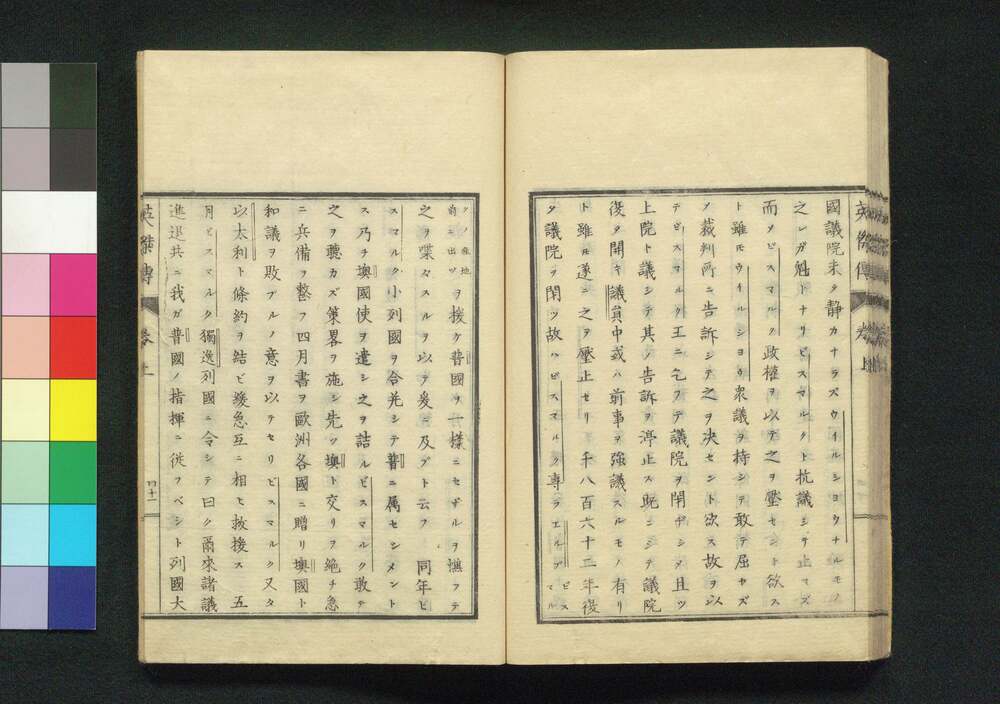 國議院未タ靜カナラズウイルシヨウナルモノ
之レガ魁トナリビスマルクト抗議シヲ止マズ
而ソビスマルク政權ヲ以テ之ヲ壓セント欲ス
ト雖モウイルシヨウ衆議ヲ持シテ敢テ屈セズ
ノ裁判所ニ告訴シテ之ヲ決セント欲ス故ヲ以
テビスマルク王ニ乞フテ議院ヲ閉ヂシメ且ツ
上院ト議シテ其ノ告訴ヲ停止ス既ニシテ議院
復タ開キ議員中或ハ前事ヲ強議スルモノ有リ
ト雖モ遂ニ之ヲ壓止セリ千八百六十三年後
タ議院ヲ閉ツ故ハビスマルク專ラエルブビスマル
クノ産地前ニ出ツヲ援ケ普國ヲ一樣ニセザルヲ憮フテ
之ヲ喋々スルヲ以テ爰ニ及ブト云フ 同年ビ
スマルク小列國ヲ合并シテ普ニ属センメント
ス乃チ墺國使ヲ遣シ之ヲ詰ルビスマルク敢テ
之ヲ聽カズ策畧ヲ施シ先ヅ墺ト交リヲ絶チ急
ニ兵備ヲ整フ四月書ヲ歐洲各國ニ贈リ墺國ト
和議ヲ敗ブルノ意ヲ以テセリビスマルク又タ
以太利ト條約ヲ結ビ緩急互ニ相ヒ救援ス 五
月ビスマルク獨逸列國ニ令シテ曰ク爾來諸議
進退共ニ我ガ普國ノ指揮ニ從フベシト列國大
英傑傳 卷上 四十一